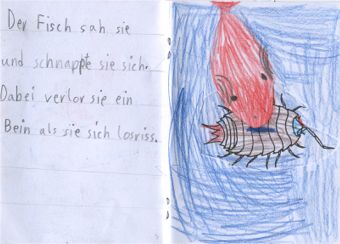 Der Fisch sah sie
und schnappte sie sich.
Dabei verlor sie ein
Bein als sie sich losriss.